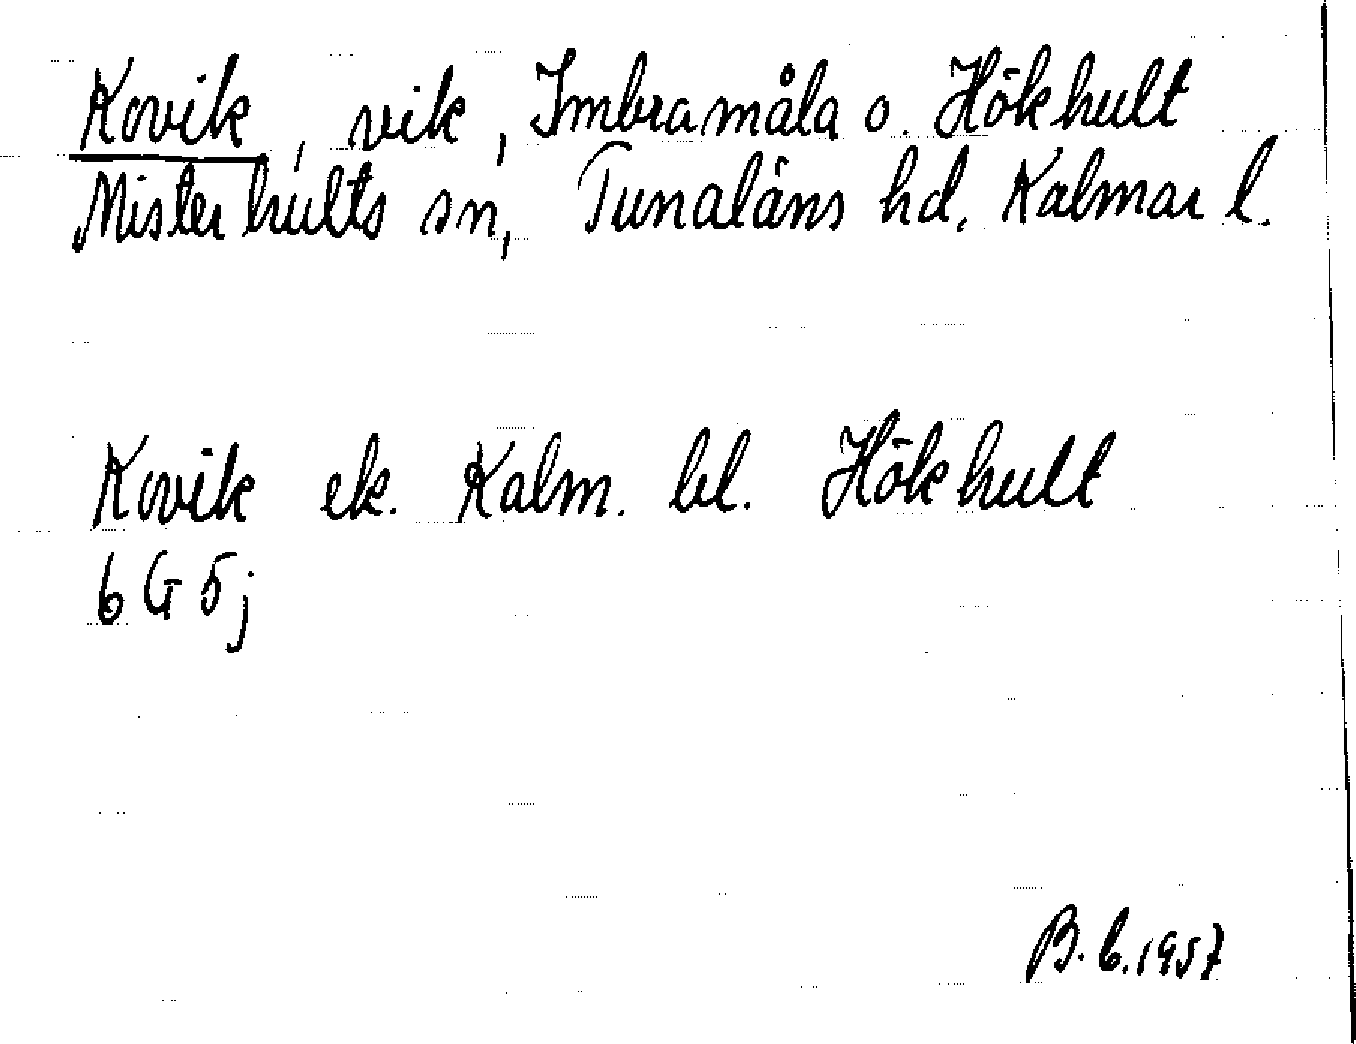 Kovik, vik, Imbramåla o. Hökhult
Misterhults sn, Tunaläns hd, Kalmar l.
Kovik ek. Kalm. bl. Hökhult
6G5j
B.C.1957